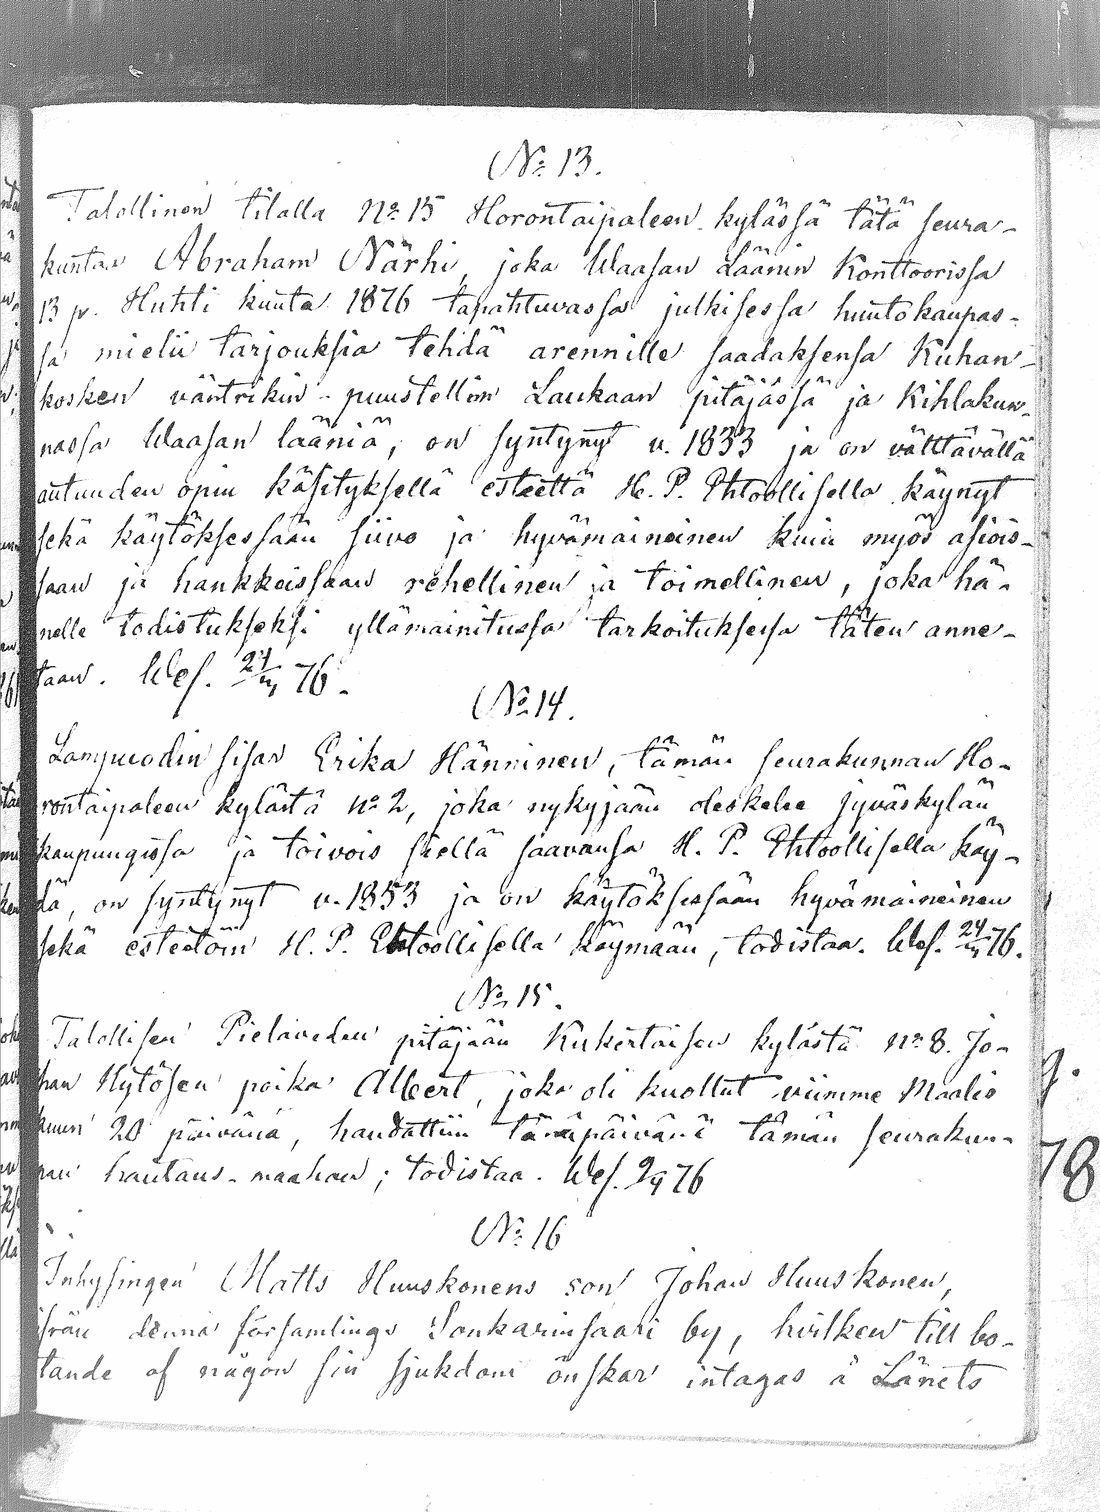 No 13.
Talollinen tilalla No 15 Horontaipaleen kylässä tätä seura-
kuntaa Abraham Närhi, joka Waasan Läänin Konttoorissa
13 p. Huhti kuuta 1876 tapahtuvassa julkisessa huutokaupas-
sa mielii tarjouksia tehdä arennille saadaksensa Kuhan-
kosken väntrikin-puustellin Laukaan pitäjässä ja Kihlakun-
nassa Waasan lääniä, on syntynyt v. 1833 ja on välttävällä
autuuden opin käsityksellä esteettä H. P. Ehtoollisella käynyt
sekä käytöksessään siivo ja hyvämaineinen kuin myös asiois-
saan ja hankkeissaan rehellinen ja toimellinen, joka hä-
nelle todistukseksi yllämainitussa tarkoituksessa täten anne-
taan. Wes. 24/3 76.
No 14.
Lampuodin sisar Erika Hänninen, tämän seurakunnan Ho-
rontaipaleen kylästä no 2, joka nykyjään oleskelee Jyväskylän
kaupungissa ja toivois siellä saavansa H. P. Ehtoollisella käy-
dä, on syntynyt v. 1853 ja on käytöksessään hyvämaineinen
sekä esteetöin H. P. Ehtoollisella käymään, todistaa. Wes. 24/3 76.
No 15.
Talollisen Pielaveden pitäjään Kukertaisen kylästä no 8. Jo-
han Hytösen poika Albert, joka oli kuollut viimme Maalis
kuun 20 päivänä, haudattiin tänäpäivänä tämän seurakun-
nan hautaus-maahan; todistaa. Wes. 2/4 76
No 16
Inhysingen Matts Huuskonens son Johan Huuskonen,
ifrån denna församlings Sonkarinsaari by, hvilken till bo-
tande af någon sin sjukdom önskar intagas å Länets
78